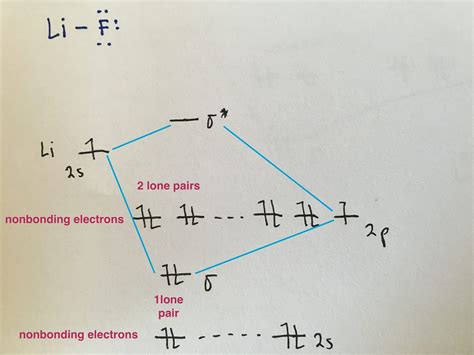 Li – F:
σ*
Li
2s
2 lone pairs
nonbonding electrons
2p
σ
1lone
pair
nonbonding electrons
2s